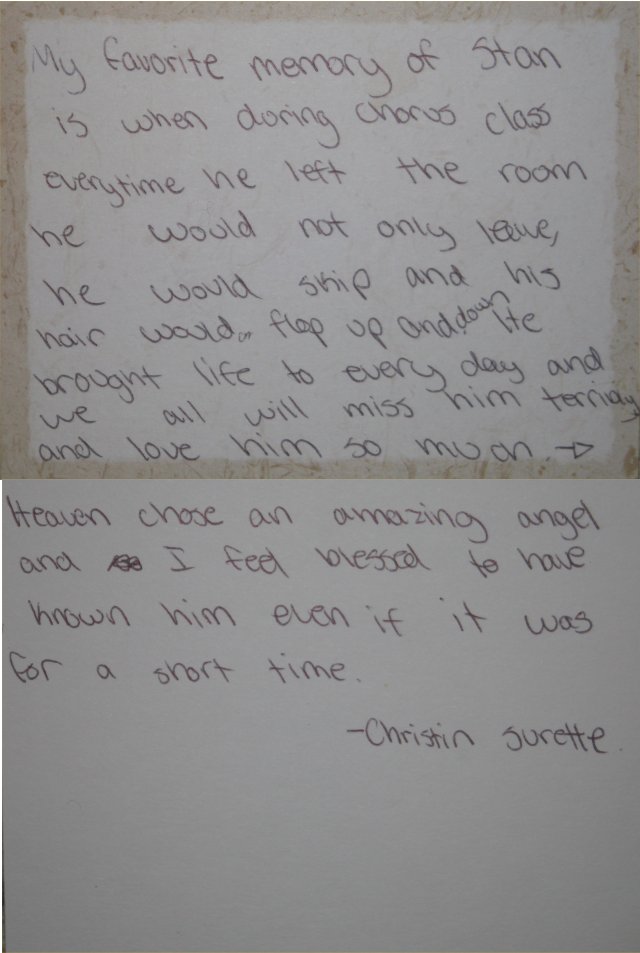 My favorite memory of Stan
is when during chorus class
everytime he left the room
he would not only leave,
he would skip and his
hair would flop up and down. He
brought life to every day and
we all will miss him terribly
and love him so much. →
Heaven chose an amazing angel
and I feel blessed to have
known him even if it was
for a short time.
-Christin Surette